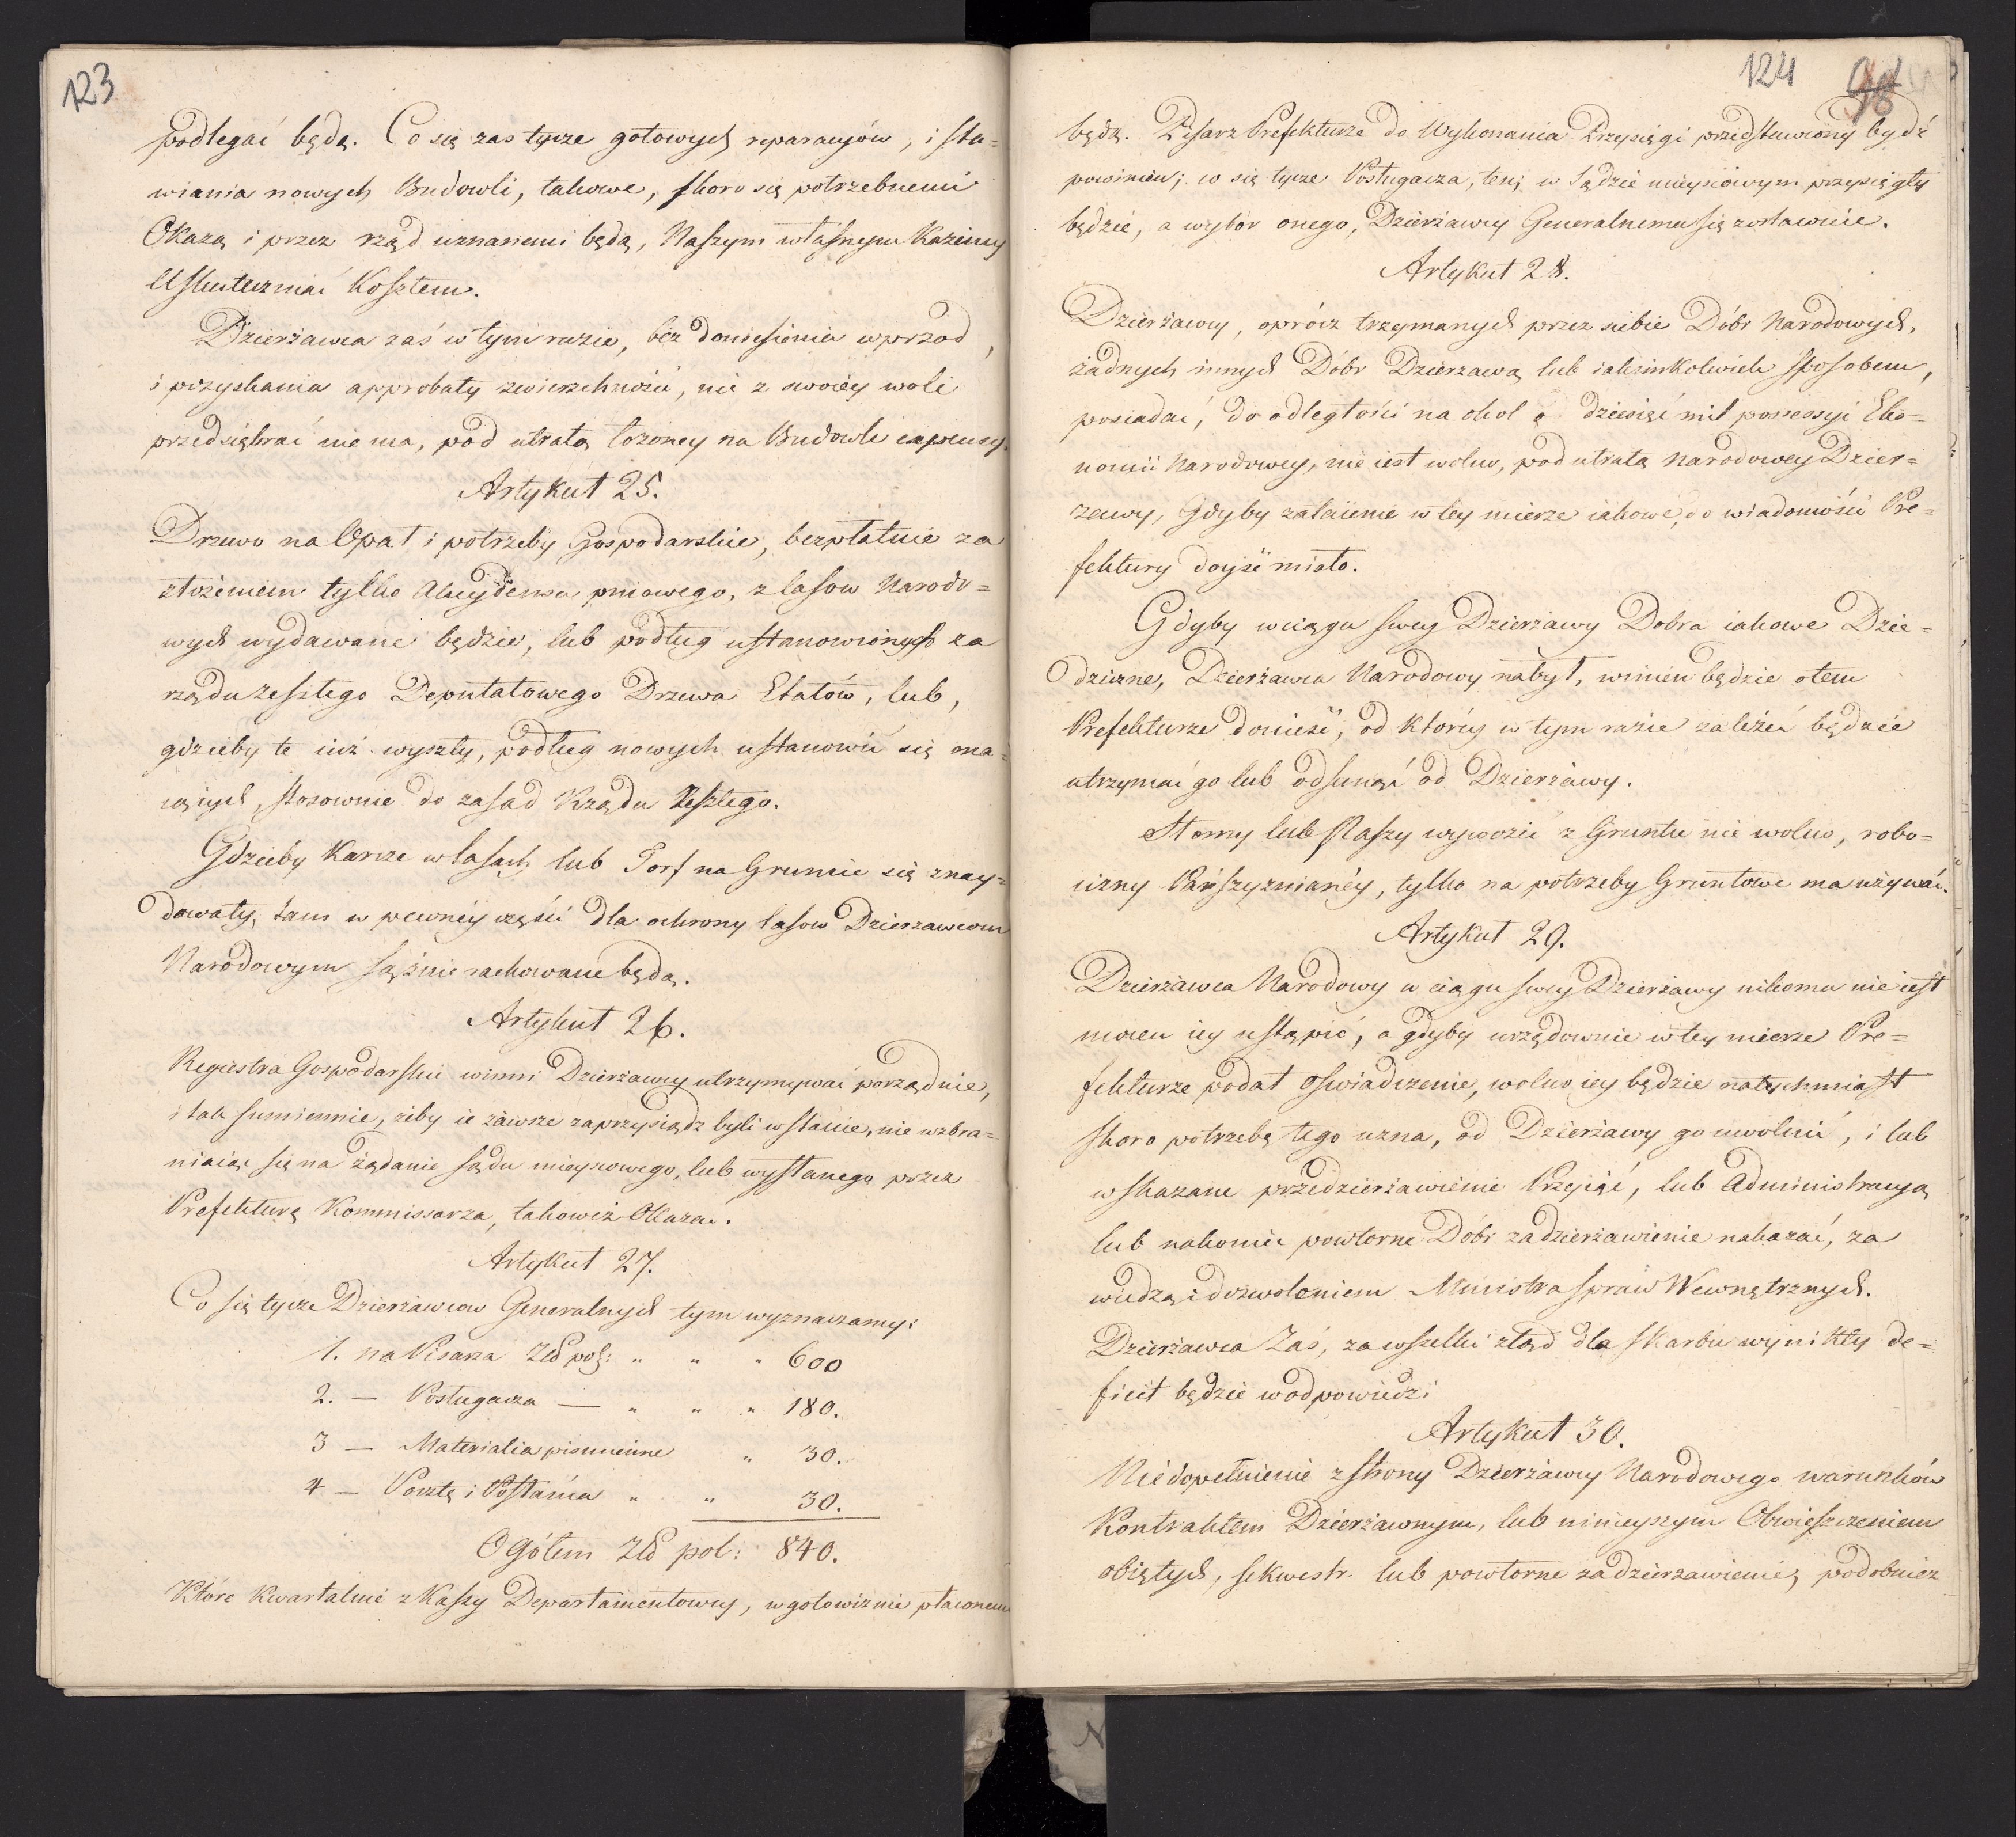 123
podlegać będą. Co się zas tycze gotowych reparacyów, i sta=
wiania nowych Budowli, takowe, skoro się potrzebnemi
Okażą i przez rząd uznanemi będą, Naszym własnym Każemy
Uskuteczniać Kosztem.
Dzierżawca zaś w tym razie, bez doniesienia wprzod,
i pozyskania approbaty zwierzchności, nic z swoiey woli
przedsiębrać nie ma, pod utratą łożoney na Budowle expensy.
Artykuł 25.
Drzewo na Opał i potrzeby Gospodarskie, bezpłatnie za
złożeniem tylko Akcydensu pniowego, z lasow Narodo=
wych wydawane będzie, lub podług ustanowionych za
rządu zeszłego Deputatowego Drzewa Etatów, lub,
gdzieby te iuż wyszły, podług nowych ustanowić się ma=
iących, stosownie do zasad Rządu Zeszłego.
Gdzieby Karcze w lasach lub Torf na Gruncie się znay=
dowały, tam w pewnéy części dla ochrony lasow Dzierzawcom
Narodowym sążnie rachowane będą.
Artykuł 26.
Regiestra Gospodarskie winni Dzierżawcy utrzymywać porządnie,
i tak sumiennie, żeby ie zawsze zaprzysiądz byli w stanie, nie wzbra=
niaiąc się na żądanie sądu mieyscowego, lub wysłanego przez
Prefekturę Kommissarza, takoweż Okazać.
Artykuł 27.
Co się tycze Dzierżawcow Generalnych tym wyznaczamy:
1. na Pisarza Złł pols: " " " 600
2. — Posługacza — " " " 180.
3 — Materialia pismienne " 30.
4 — Pocztę i Posłańca " " 30.
Ogółem Złł pol: 840.
Które kwartalnie z Kassy Departamentowey, w gotowiznie płaconemi
124 98
będą. Pisarz Prefekturze do Wykonania Przysięgi przedstawiony bydź
powinien; co się tycze Posługacza, ten, w Sądzie mieyscowym przysięgły
będzie, a wybór onego, Dzierżawcy Generalnemu się zostawuie.
Artykuł 28.
Dzierżawcy, oprócz trzymanych przez siebie Dóbr Narodowych,
żadnych innych Dóbr Dzierżawą lub iakimkolwiek sposobem,
posiadać, do odległości na okoł o dziesięć mil possessyi Eko=
nomii Narodowey, nie iest wolno, pod utratą Narodowey Dzier=
żawy, Gdyby zataienie w tey mierze iakowe, do wiadomości Pre=
fektury doyść miało.
Gdyby w ciągu swey Dzierżawy Dobra iakowe Dzie=
dziczne, Dzierżawca Narodowy nabył, winien będzie o tem
Prefekturze donieść, od któréy w tym razie zależeć będzie
utrzymać go lub odsunąć od Dzierżawy.
Słomy lub Paszy wywozić z Gruntu nie wolno, robo=
cizny Pańszyznianéy, tylko na potrzeby Gruntowe ma używać.
Artykuł 29.
Dzierżawca Narodowy w ciągu swey Dzierżawy nikomu nie iest
mocen iey ustąpić, a gdyby urzędownie w tey mierze Pre=
fekturze podał oswiadczenie, wolno iey będzie natychmiast
skoro potrzebę tego uzna, od Dzierżawy go uwolnić, i lub
wskazane przedzierżawienie Przyjąć, lub Administracyą
lub nakoniec powtorne Dóbr zadzierżawienie nakazać, za
wiedzą i dozwoleniem Ministra Spraw Wewnętrznych.
Dzierżawca Zaś, za wszelki ztąd dla skarbu wynikły de=
ficit będzie w odpowiedzi
Artykuł 30.
Niedopełnienie z strony Dzierżawcy Narodowego warunków
Kontraktem Dzierżawnym, lub ninieyszym Obwieszczeniem
obiętych, sekwestr. lub powtorne zadzierzawienie, podobnież